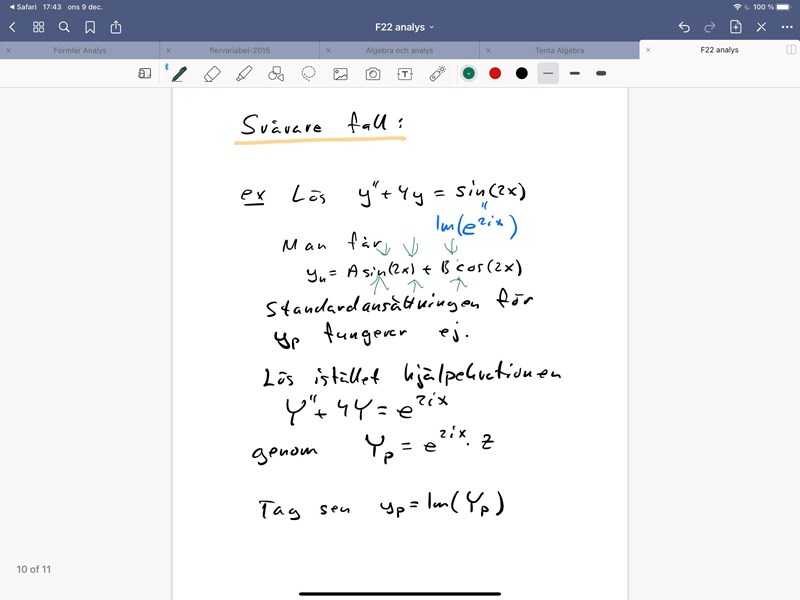 Safari 17:43 ons 9 dec. 100 %
F22 analys
Formler Analys flervariabel-2015 Algebra och analys Tenta Algebra F22 analys
Svårare fall:
ex Lös y"+4y = sin(2x)
"
Im(e^2ix)
Man får
y_h = A sin(2x) + B cos(2x)
Standardansättningen för
y_p fungerar ej.
Lös istället hjälpekvationen
Y"+ 4Y = e^2ix
genom Y_p = e^2ix · z
Tag sen y_p = Im(Y_p)
10 of 11